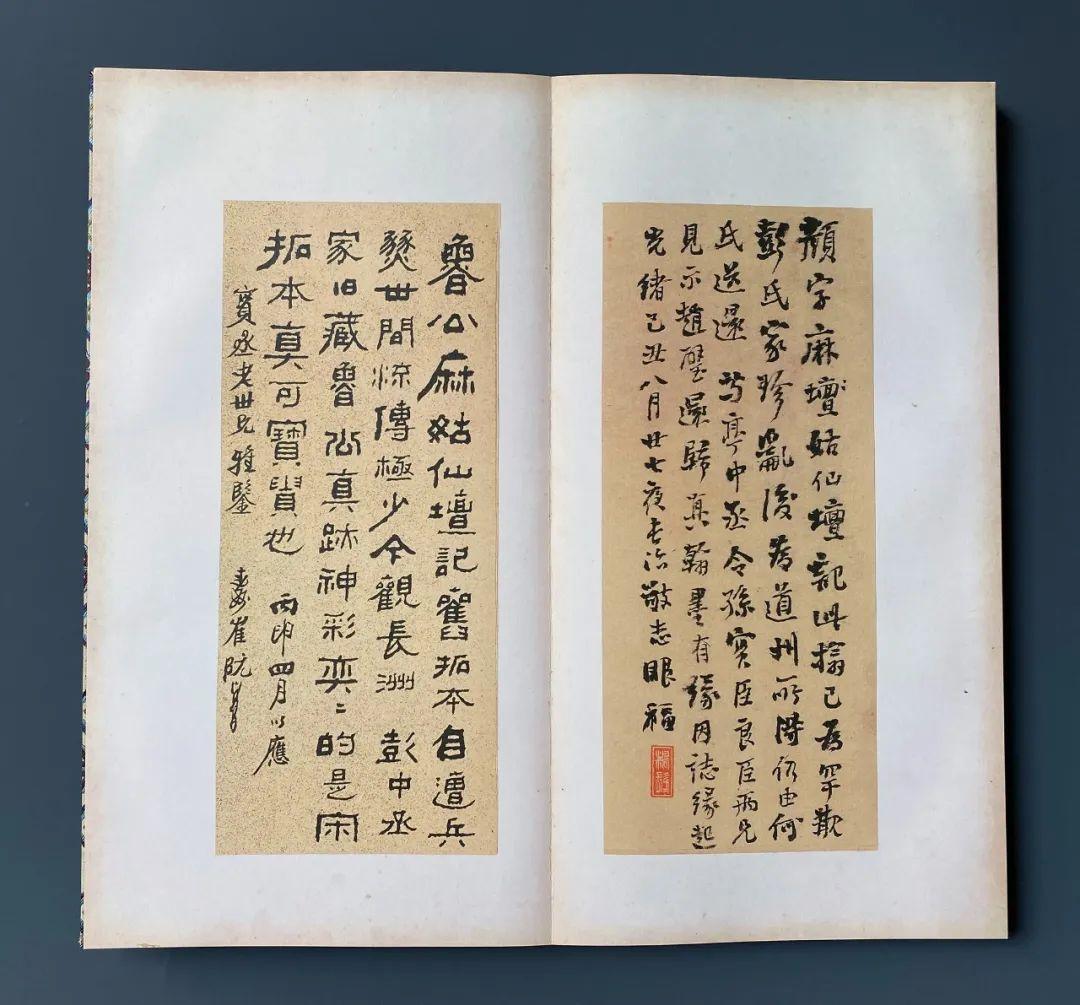 顏字麻壇姑仙壇記此搨已為罕
彭氏家珍亂後為道州所得仍由何
氏送還芍亭中丞令孫實臣良臣兩兄
見示趙璧還歸真翰墨有緣因誌緣起
光緒己丑八月廿七夜長敬志眼福
魯公麻姑仙壇記舊拓本自遭兵
燹世間流傳極少今觀長洲彭中丞
家旧藏魯公真跡神彩奕〻的是宋
拓本真可寶貴也 丙申四月以應
寶丞老世兄雅鑒